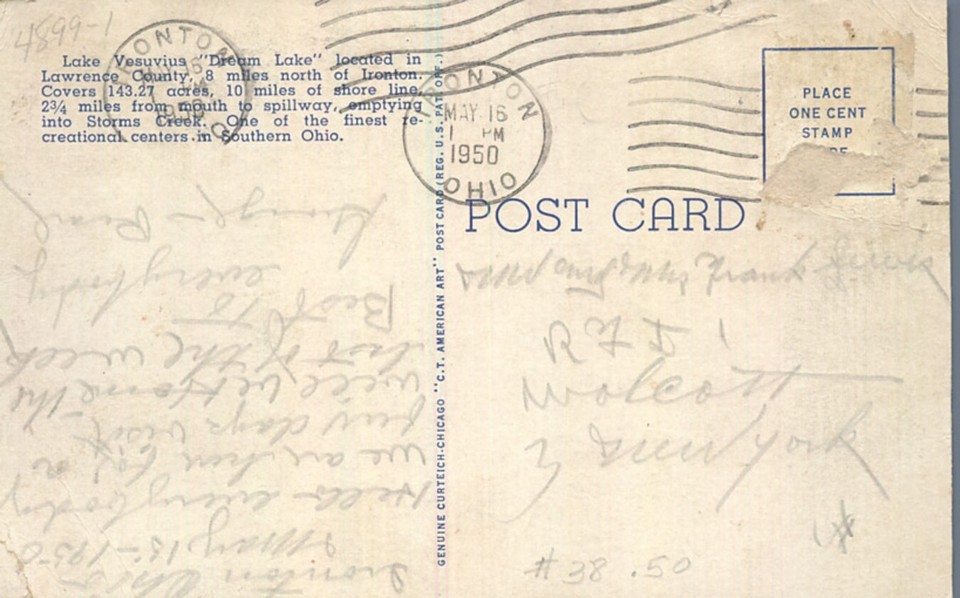 4899-1
Lake Vesuvius "Dream Lake" located in
Lawrence County, 8 miles north of Ironton.
Covers 143.27 acres, 10 miles of shore line,
2¾ miles from mouth to spillway, emptying
into Storms Creek. One of the finest re-
creational centers in Southern Ohio.
IRONTON
1950
IRONTON
MAY 16
1 PM
1950
OHIO
PLACE
ONE CENT
STAMP
POST CARD
GENUINE CURTEICH-CHICAGO "C.T. AMERICAN ART" POST CARD (REG. U.S. PAT. OFF.)
Ironton Ohio
May 15-1950
Hello everybody
we are here for a
few days visit
will be home the
last of the week
Best to
everybody
Frank
Wolcott
New York
#38 .50